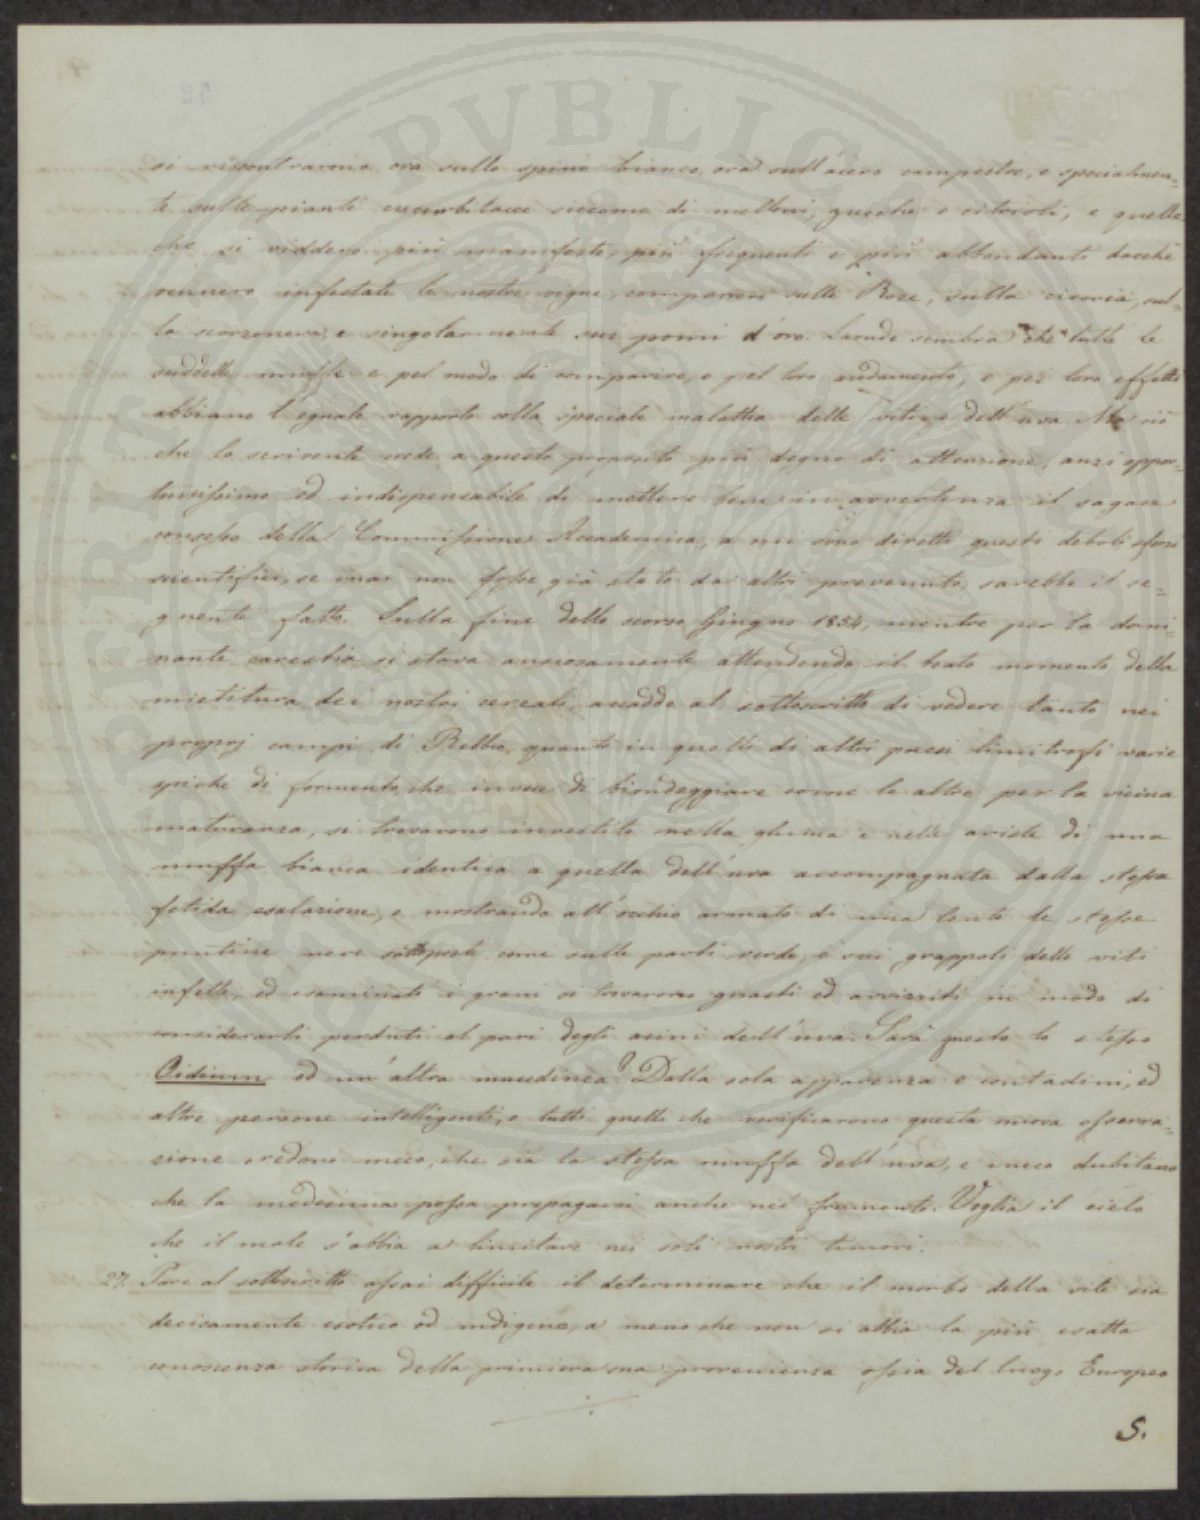 si riscontrarono ora sullo spino bianco, ora sull'acero campestre, e specialmen=
te sulle piante cucurbitacee siccome di melloni, zucche e citrioli, e quelle
che si viddero più manifeste, più frequenti e più abbondanti dacchè
vennero infestate le nostre vigne, comparvero sulle Rose, sulla cicoria, sul=
la scorzonera, e singolarmente sui pomi d'oro. Laonde sembra che tutte le
suddette muffe e pel modo di comparire, e pel loro andamento, e pei loro effetti
abbiano l'eguale rapporto colla speciale malattia delle viti e dell'uva. Ma ciò
che lo scrivente crede a questo proposito più degno di attenzione, anzi oppor=
tunissimo ed indispensabile di mettere bene in avvertenza il sagace
consesso della Commissione Accademica, a cui sono diretti questi deboli sforzi
scientifici, se mai non fosse già stato da altri prevenuto, sarebbe il se=
guente fatto. Sulla fine dello scorso Giugno 1854, mentre per la domi=
nante carestia si stava ansiosamente attendendo il beato momento della
mietitura dei nostri cereali, accadde al sottoscritto di vedere tanto nei
proprj campi di Rebbio, quanto in quelli di altri paesi limitrofi varie
spiche di formento, che invece di biondeggiare come le altre per la vicina
maturanza, si trovarono investite nella gluma e nelle ariste di una
muffa bianca identica a quella dell'uva accompagnata dalla stessa
fetida esalazione, e mostrando all'occhio armato di una lente le stesse
puntine nere sottoposte come sulle parti verde, e sui grappoli delle viti
infette, ed esaminati i grani si trovarono guasti ed avvizziti in modo di
considerarli perduti al pari degli acini dell'uva. Sarà questo lo stesso
Oidium od un'altra mucedinea? Dalla sola apparenza e contadini, ed
altre persone intelligenti, e tutti quelli che verificarono questa nuova osserva=
zione credono meco, che sia la stessa muffa dell'uva, e meco dubitano
che la medesima possa propagarsi anche nei frumenti. Voglia il cielo
che il male s'abbia a limitare nei soli nostri timori.
27. Pare al sottoscritto assai difficile il determinare che il morbo della vite sia
decisamente esotico od indigeno, a meno che non si abbia la più esatta
conoscenza storica della primiera sua provenienza ossia del luogo Europeo
5.